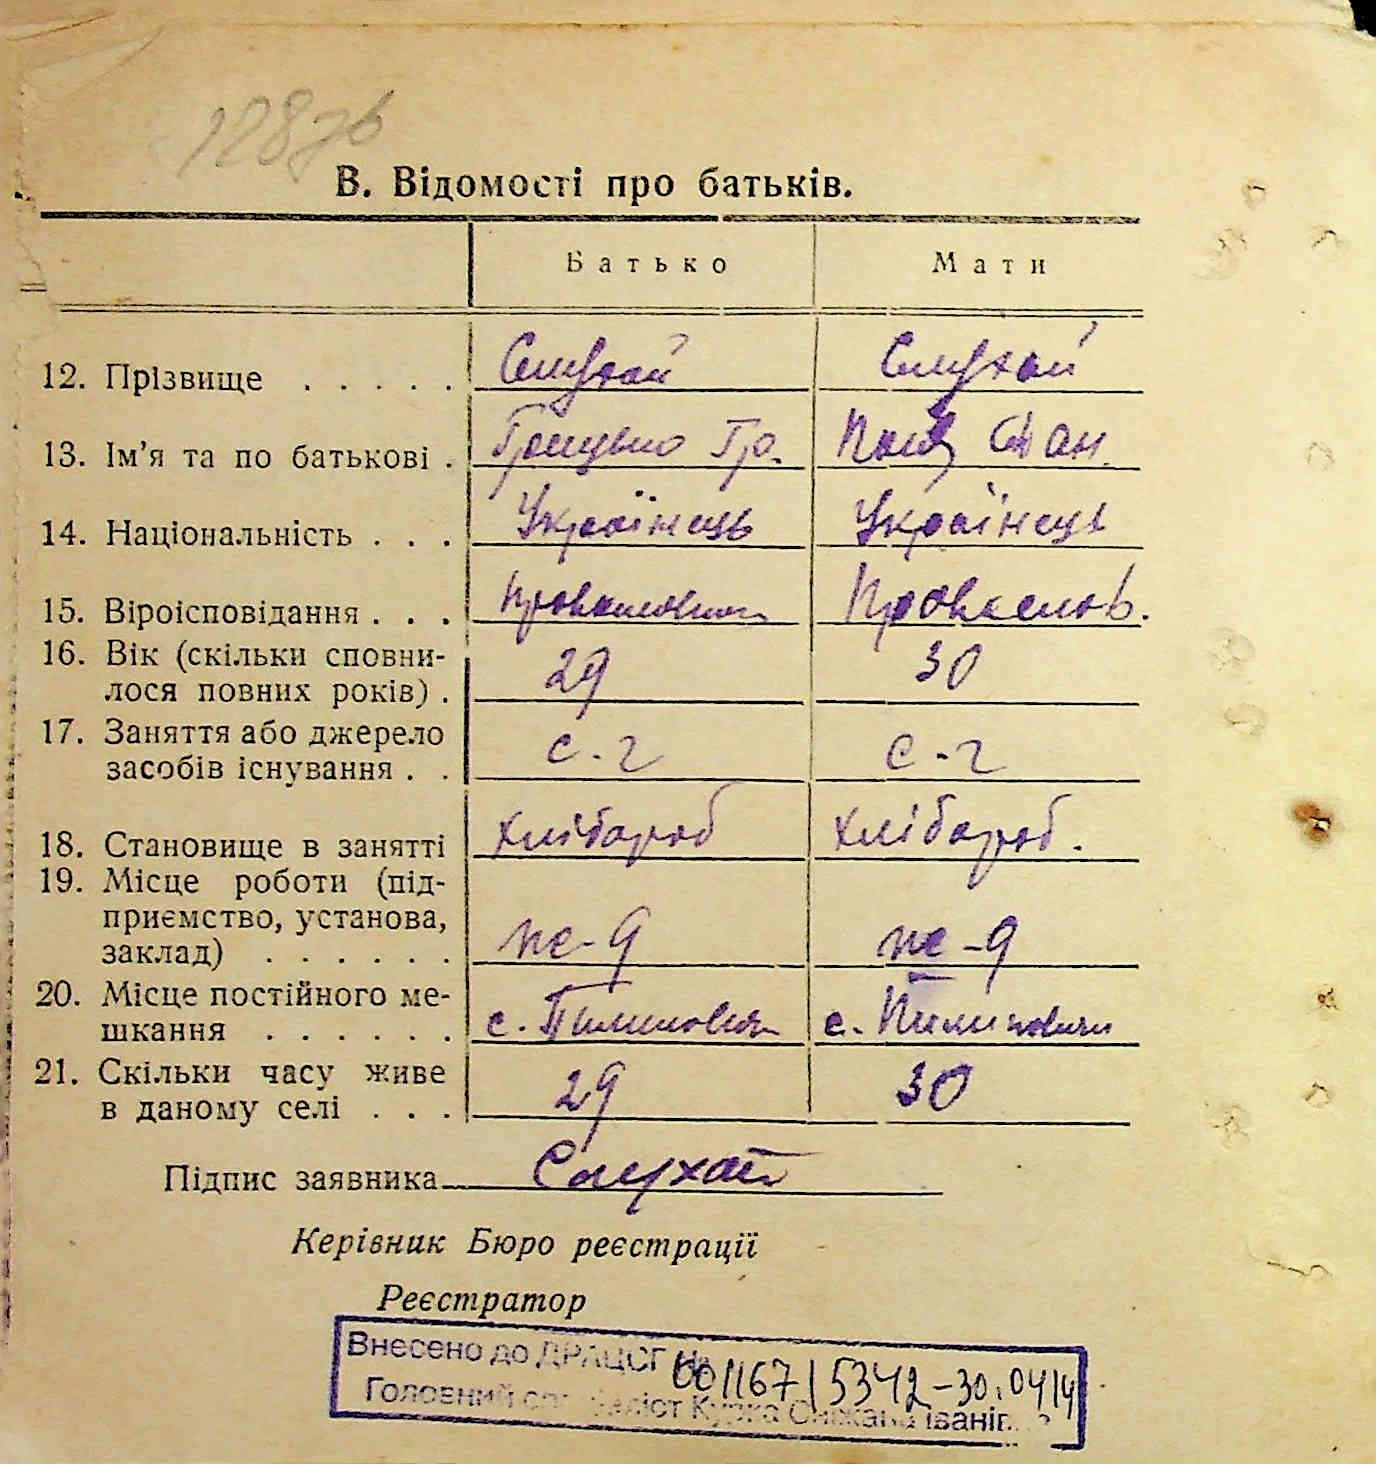 В. Відомості про батьків.
Батько Мати
12. Прізвище . . . . . Слухай Слухай
13. Ім'я та по батькові . Грицько Гр. Дан.
14. Національність . . . Українець Українець
15. Віроісповідання . . . Православний Православ.
16. Вік (скільки сповни-
лося повних років) . 29 30
17. Заняття або джерело
засобів існування . . с-г с-г
18. Становище в занятті хлібороб хлібороб.
19. Місце роботи (під-
приємство, установа,
заклад) . . . . . .
20. Місце постійного ме-
шкання . . . . . . с. Пилиповичі с. Пилиповичі
21. Скільки часу живе
в даному селі . . . 29 30
Підпис заявника Слухай
Керівник Бюро реєстрації
Реєстратор
Внесено до ДРАЦСГ № 001167/5342-30.04.14
Головний спеціаліст Курка Сніжана Іванівна